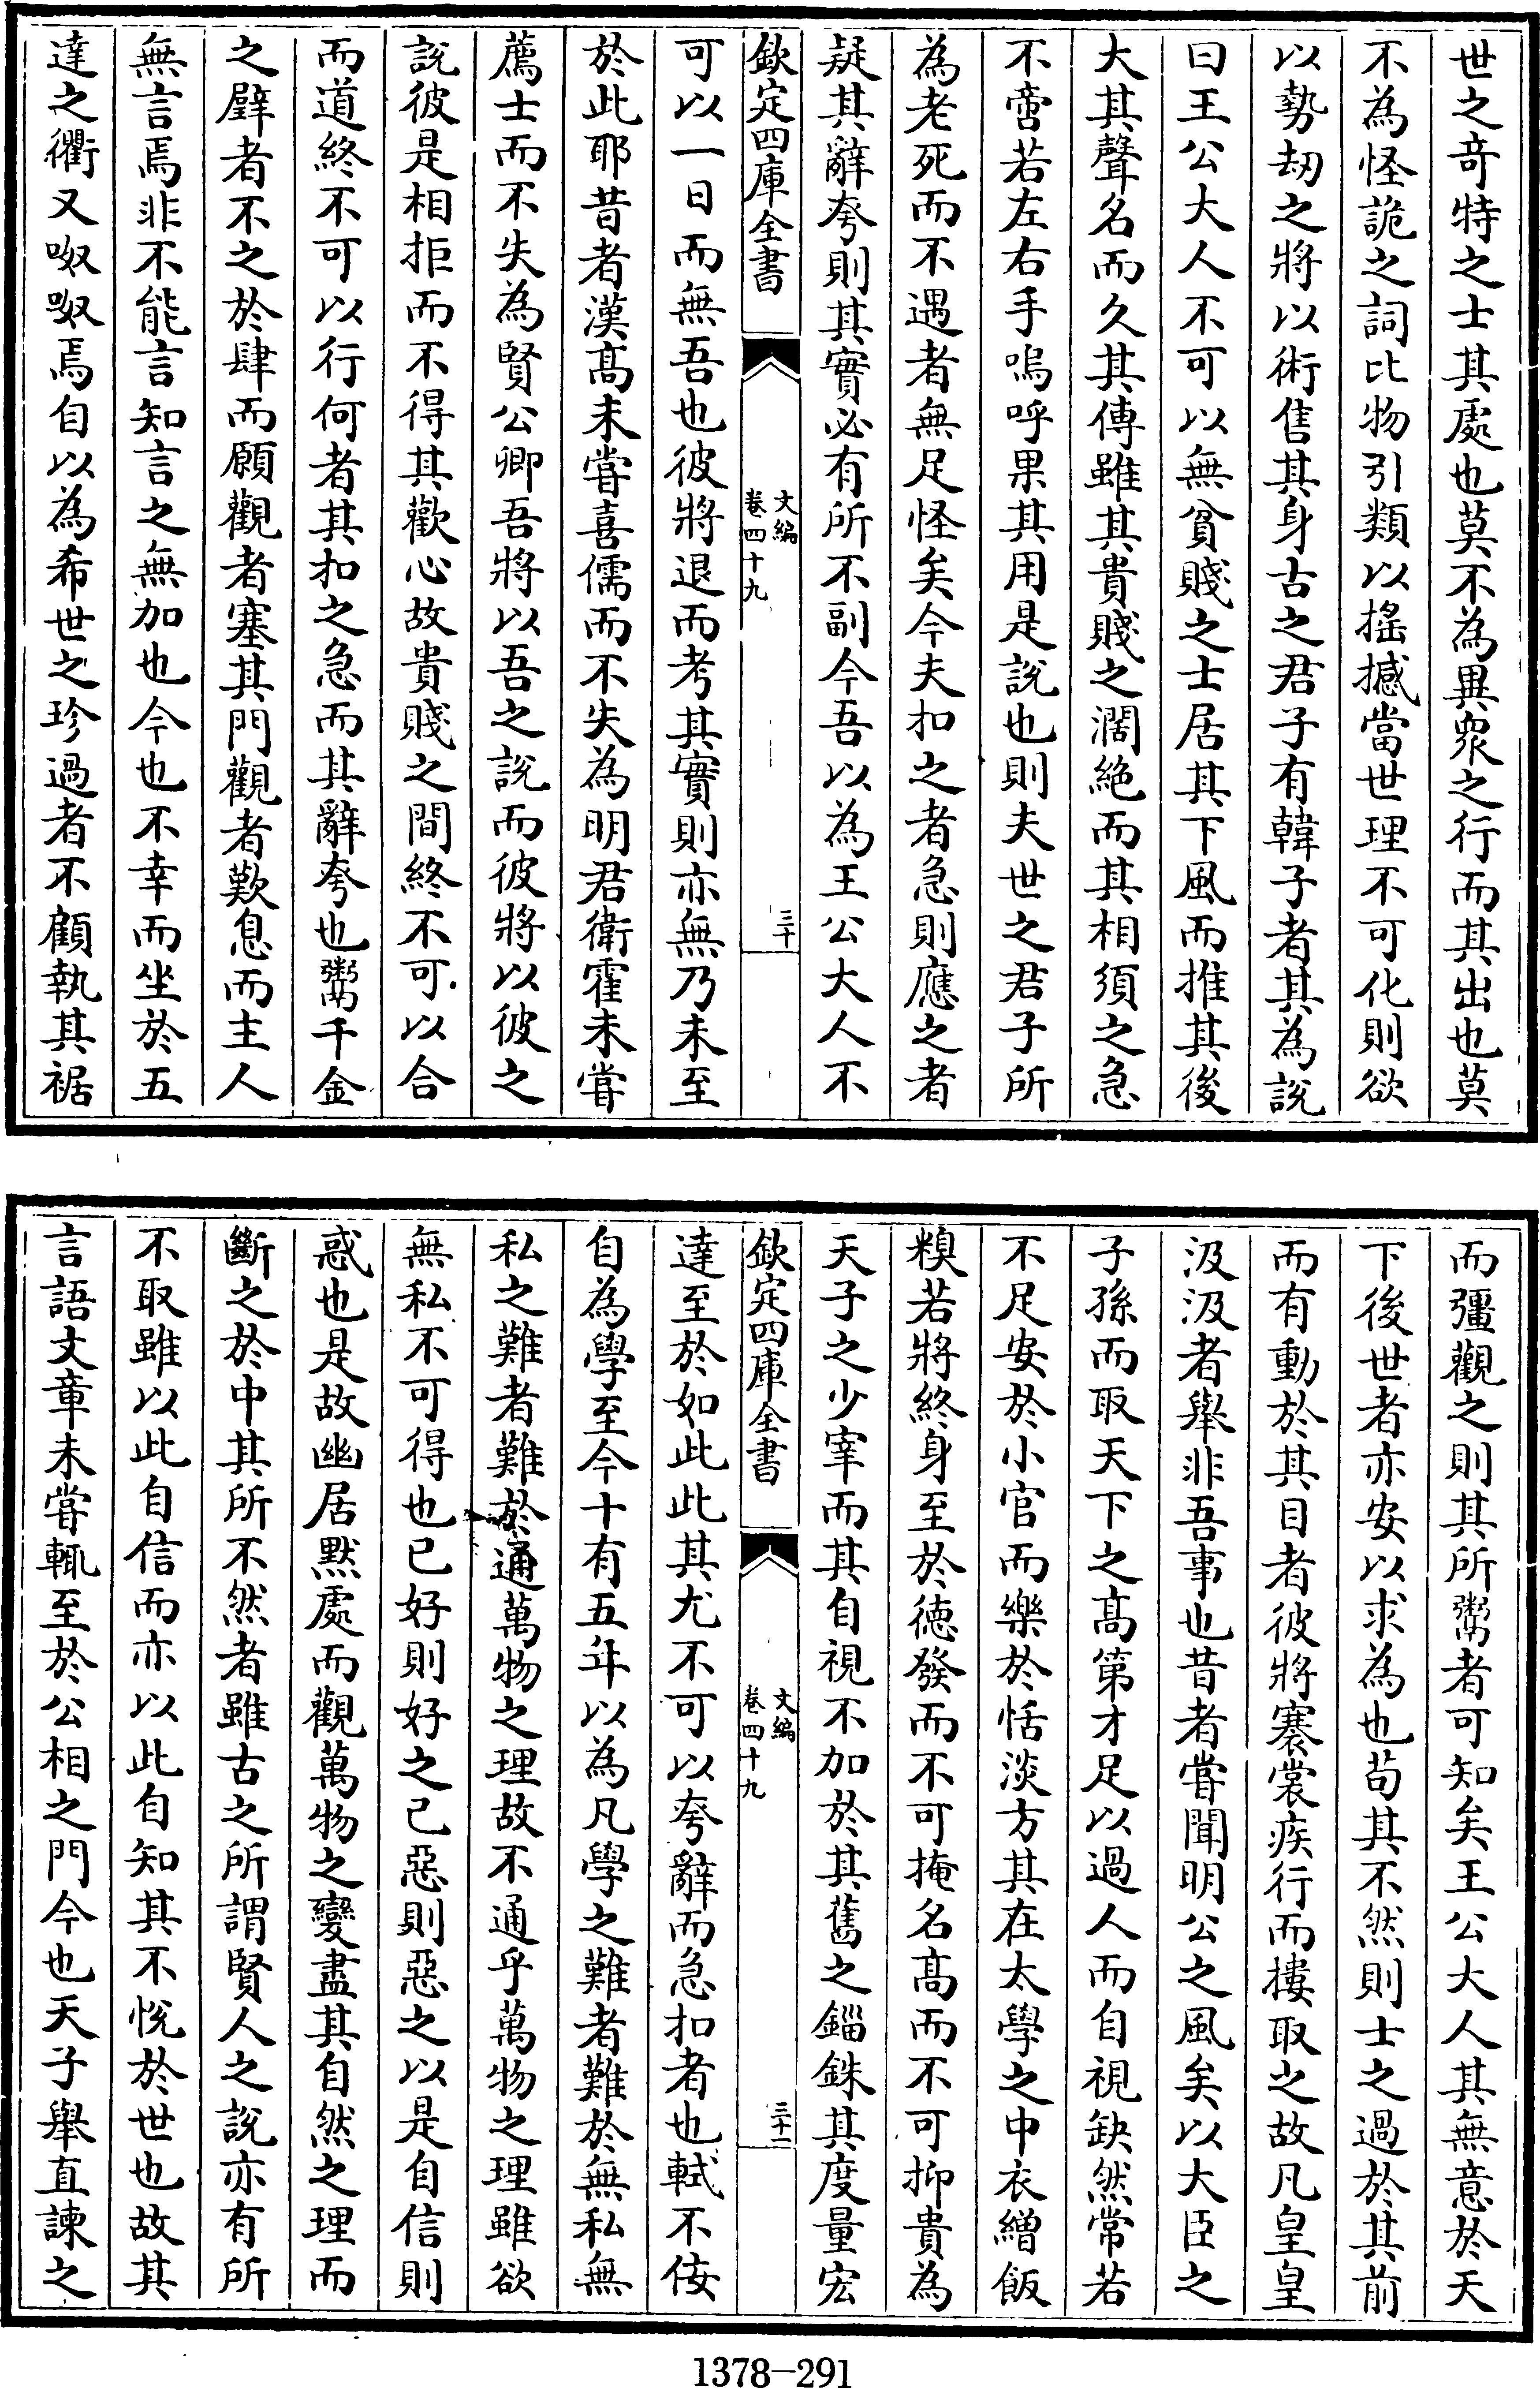 世之奇特之士其處也莫不為異衆之行而其出也莫
不為怪詭之詞比物引類以搖撼當世理不可化則欲
以勢刼之將以術售其身古之君子有韓子者其為說
曰王公大人不可以無貧賤之士居其下風而推其後
大其聲名而久其傳雖其貴賤之濶絶而其相須之急
不啻若左右手嗚呼果其用是說也則夫世之君子所
為老死而不遇者無足怪矣今夫扣之者急則應之者
疑其辭夸則其實必有所不副今吾以為王公大人不
欽定四庫全書
文編
卷四十九
三十
可以一日而無吾也彼將退而考其實則亦無乃未至
於此耶昔者漢髙未甞喜儒而不失為明君衛霍未甞
薦士而不失為賢公卿吾將以吾之說而彼將以彼之
說彼是相拒而不得其歡心故貴賤之間終不可以合
而道終不可以行何者其扣之急而其辭夸也鬻千金
之璧者不之於肆而願觀者塞其門觀者歎息而主人
無言焉非不能言知言之無加也今也不幸而坐於五
達之衢又呶呶焉自以為希世之珍過者不顧執其裾
而彊觀之則其所鬻者可知矣王公大人其無意於天
下後世者亦安以求為也茍其不然則士之過於其前
而有動於其目者彼將褰裳疾行而摟取之故凡皇皇
汲汲者舉非吾事也昔者甞聞明公之風矣以大臣之
子孫而取天下之髙第才足以過人而自視缺然常若
不足安於小官而樂於恬淡方其在太學之中衣繒飯
糗若將終身至於徳發而不可掩名髙而不可抑貴為
天子之少宰而其自視不加於其舊之錙銖其度量宏
欽定四庫全書
文編
卷四十九
三十一
達至於如此此其尤不可以夸辭而急扣者也軾不佞
自為學至今十有五年以為凡學之難者難於無私無
私之難者難於通萬物之理故不通乎萬物之理雖欲
無私不可得也已好則好之已惡則惡之以是自信則
惑也是故幽居黙處而觀萬物之變盡其自然之理而
斷之於中其所不然者雖古之所謂賢人之說亦有所
不取雖以此自信而亦以此自知其不悅於世也故其
言語文章未甞輒至於公相之門今也天子舉直諫之
1378-291